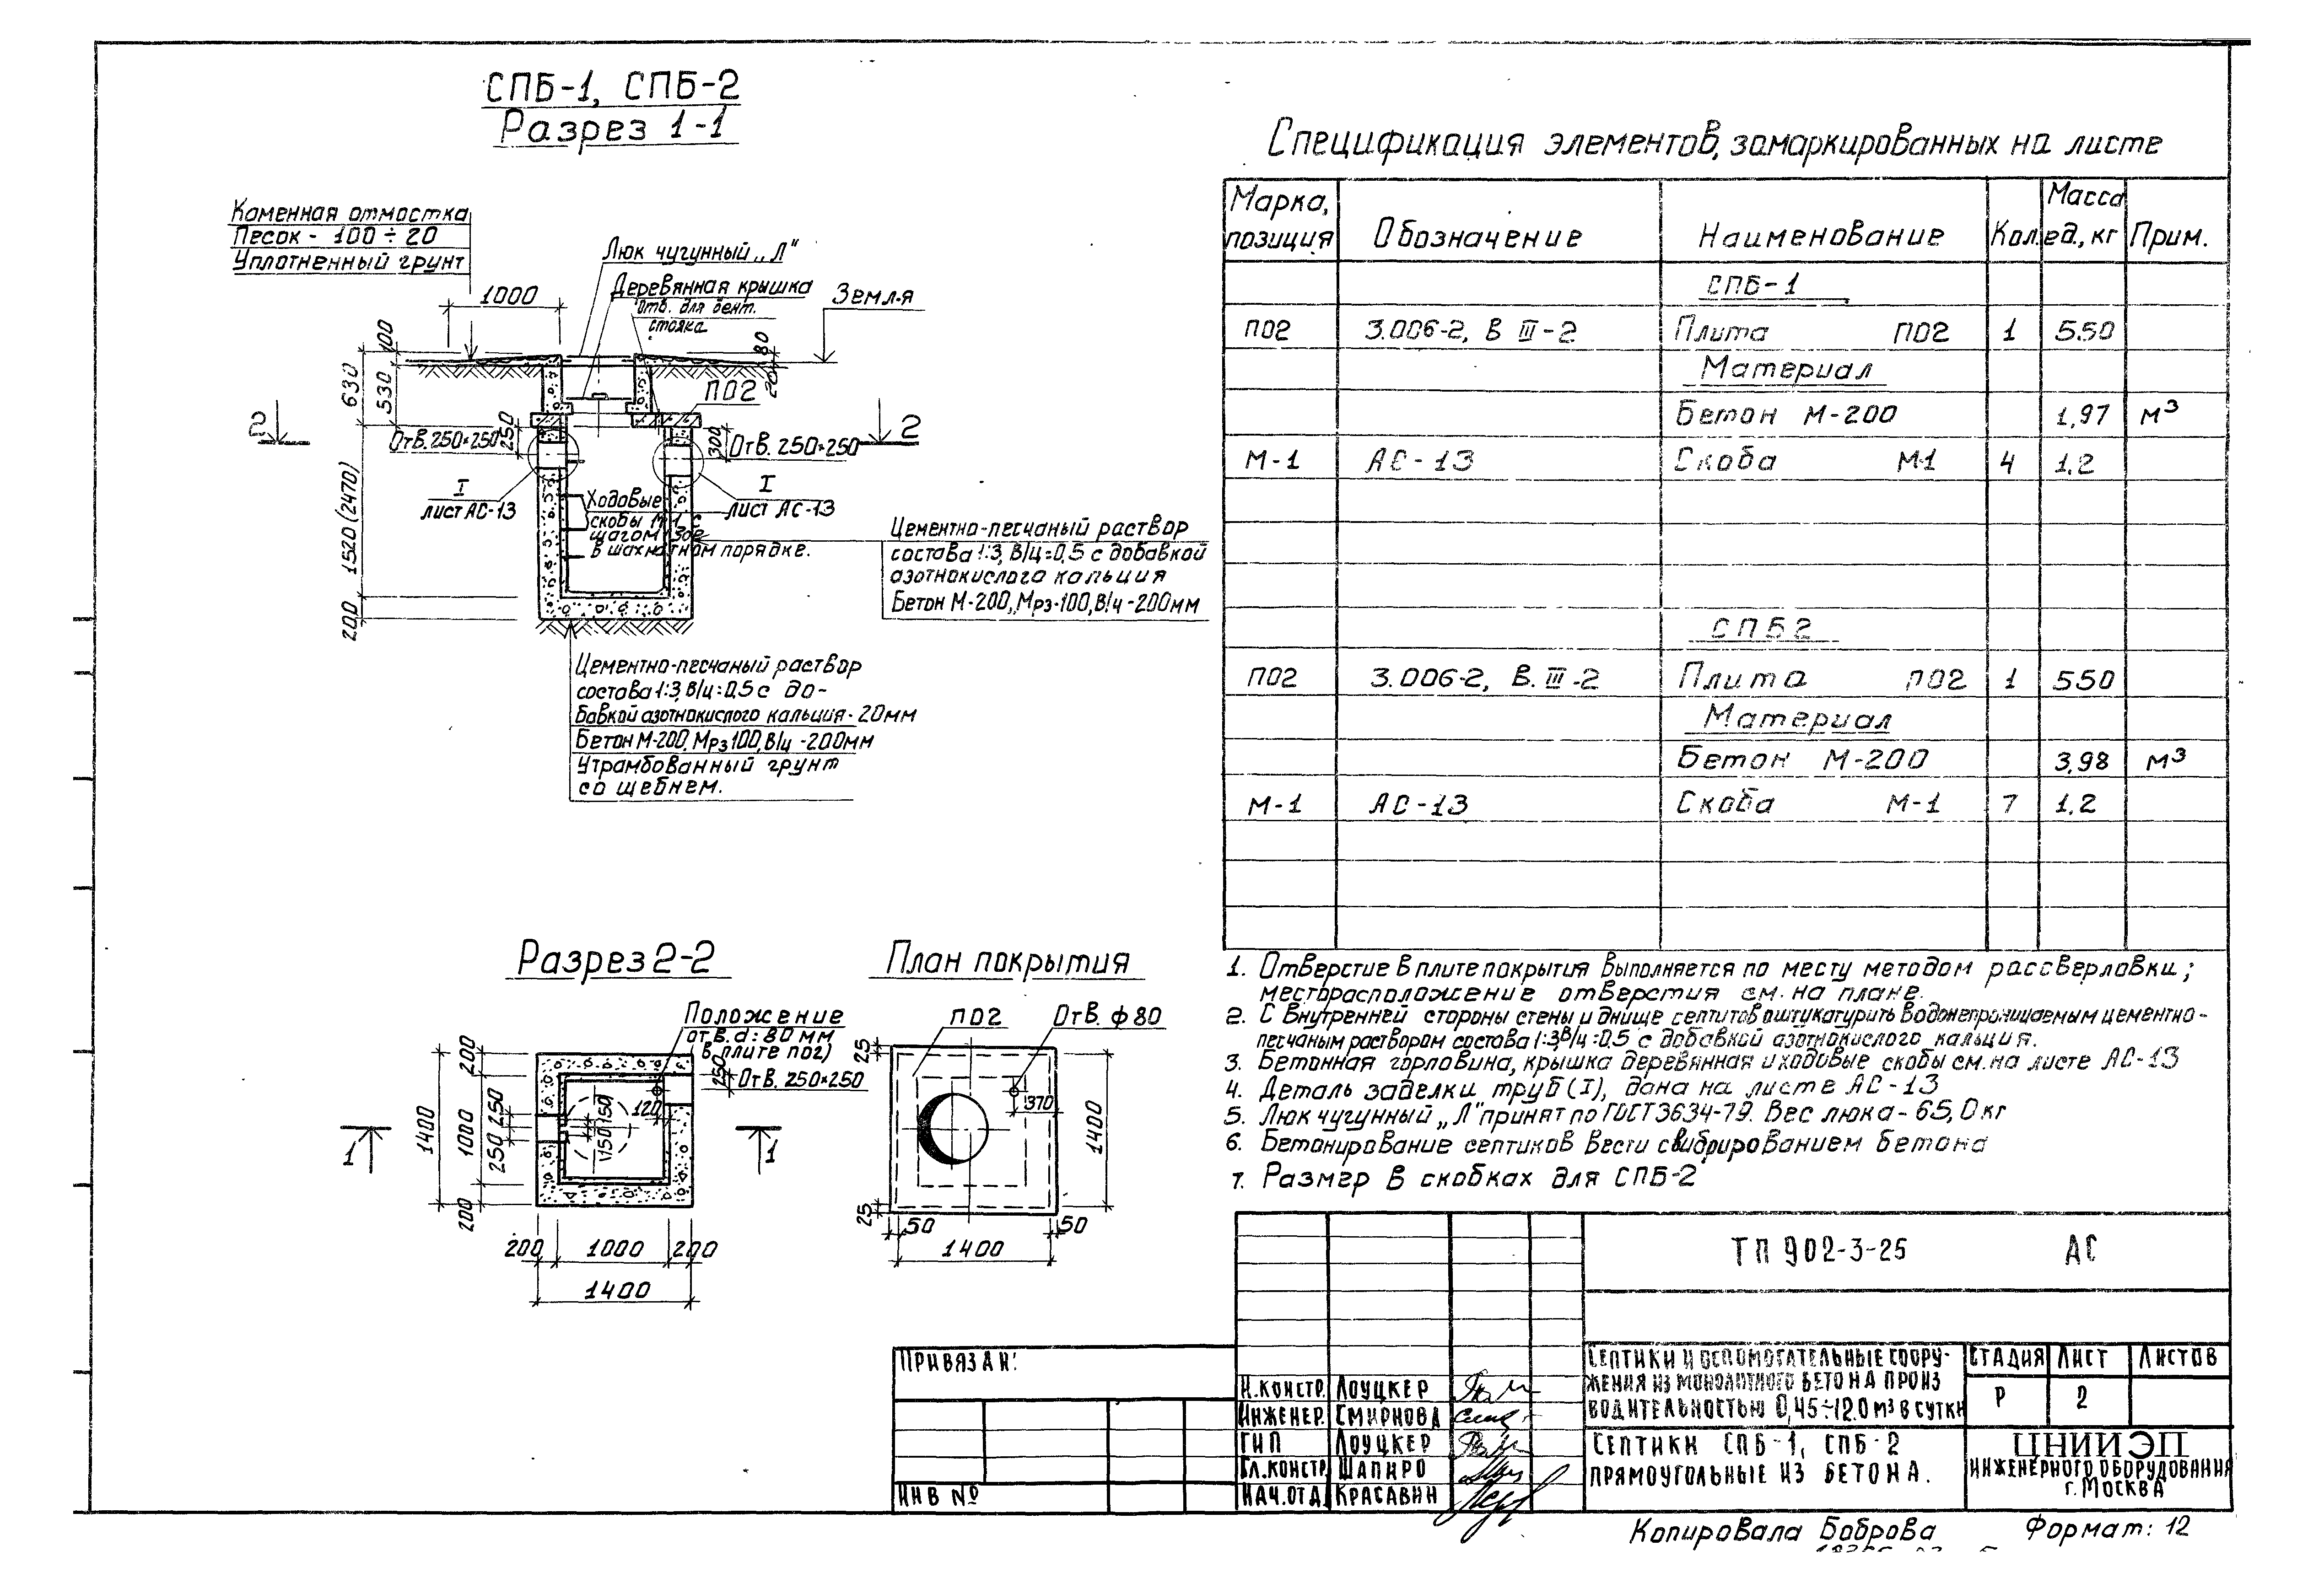 СПБ-1, СПБ-2
Разрез 1-1
Каменная отмостка
Песок - 100÷20
Уплотненный грунт
Люк чугунный „Л"
Деревянная крышка
Отв. для вент.
стояка
Земля
1000
100
630
530
80
20
ПО2
2
2
Отв. 250×250
250
300
Отв. 250×250
I
лист АС-13
I
лист АС-13
Ходовые
скобы М1 с
шагом
в шахматном порядке.
1520 (2470)
200
Цементно-песчаный раствор
состава 1:3, В/ц=0,5 с добавкой
азотнокислого кальция
Бетон М-200, Мрз-100, В/ч -200мм
Цементно-песчаный раствор
состава 1:3, В/ц=0,5 с до-
бавкой азотнокислого кальция-20мм
Бетон М-200, Мрз 100, В/ц -200мм
Утрамбованный грунт
со щебнем.
Разрез 2-2
Положение
отв. d=80 мм
в плите ПО2)
Отв. 250×250
250
200
1000
1400
200
250
250
150
150
120
1
1
200
1000
200
1400
План покрытия
ПО2
Отв. ф80
25
370
1400
25
50
50
1400
Спецификация элементов, замаркированных на листе
Марка, позиция Обозначение Наименование Кол. Масса ед., кг Прим.
СПБ-1
ПО2 3.006-2, В III-2 Плита ПО2 1 550
Материал
Бетон М-200 1,97 м3
М-1 АС-13 Скоба М1 4 1,2
СПБ2
ПО2 3.006-2, В. III-2 Плита ПО2 1 550
Материал
Бетон М-200 3,98 м3
М-1 АС-13 Скоба М-1 7 1,2
1. Отверстие в плите покрытия выполняется по месту методом рассверловки;
месторасположение отверстия см. на плане.
2. С внутренней стороны стены и днище септитов оштукатурить водонепроницаемым цементно-
песчаным раствором состава 1:3, В/ч=0,5 с добавкой азотнокислого кальция.
3. Бетонная горловина, крышка деревянная и ходовые скобы см. на листе АС-13
4. Деталь заделки труб (I), дана на листе АС-13
5. Люк чугунный „Л" принят по ГОСТ 3634-79. Вес люка - 65,0 кг
6. Бетонирование септиков вести с вибрированием бетона
7. Размер в скобках для СПБ-2
ТП 902-3-25 АС
Привязан:
Инв №
Н.констр. Лоуцкер
Инженер. Смирнова
ГИП Лоуцкер
Гл.констр. Шапиро
Нач.отд. Красавин
Септики и вспомогательные соору-
жения из монолитного бетона произ
водительностью 0,45÷12.0 м3 в сутки
Стадия Лист Листов
Р 2
Септики СПБ-1, СПБ-2
прямоугольные из бетона.
ЦНИИЭП
инженерного оборудования
г. Москва
Копировала Боброва Формат: 12